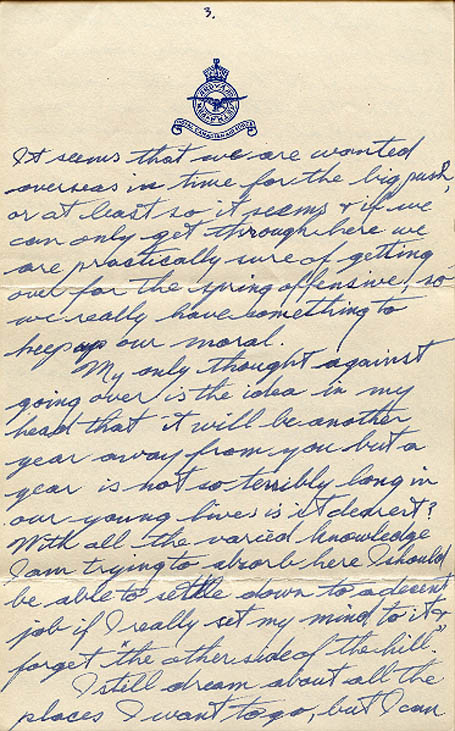 3.
ROYAL CANADIAN AIR FORCE
It seems that we are wanted
overseas in time for the big push,
or at least so it seems & if we
can only get through here we
are practically sure of getting
over for the spring offensive, so
we really have something to
keep up our moral.
My only thought against
going over is the idea in my
head that it will be another
year away from you but a
year is not so terribly long in
our young lives is it dearest?
With all the varied knowledge
I am trying to absorb here I should
be able to settle down to a decent
job if I really set my mind to it &
forget "the other side of the hill."
I still dream about all the
places I want to go, but I can